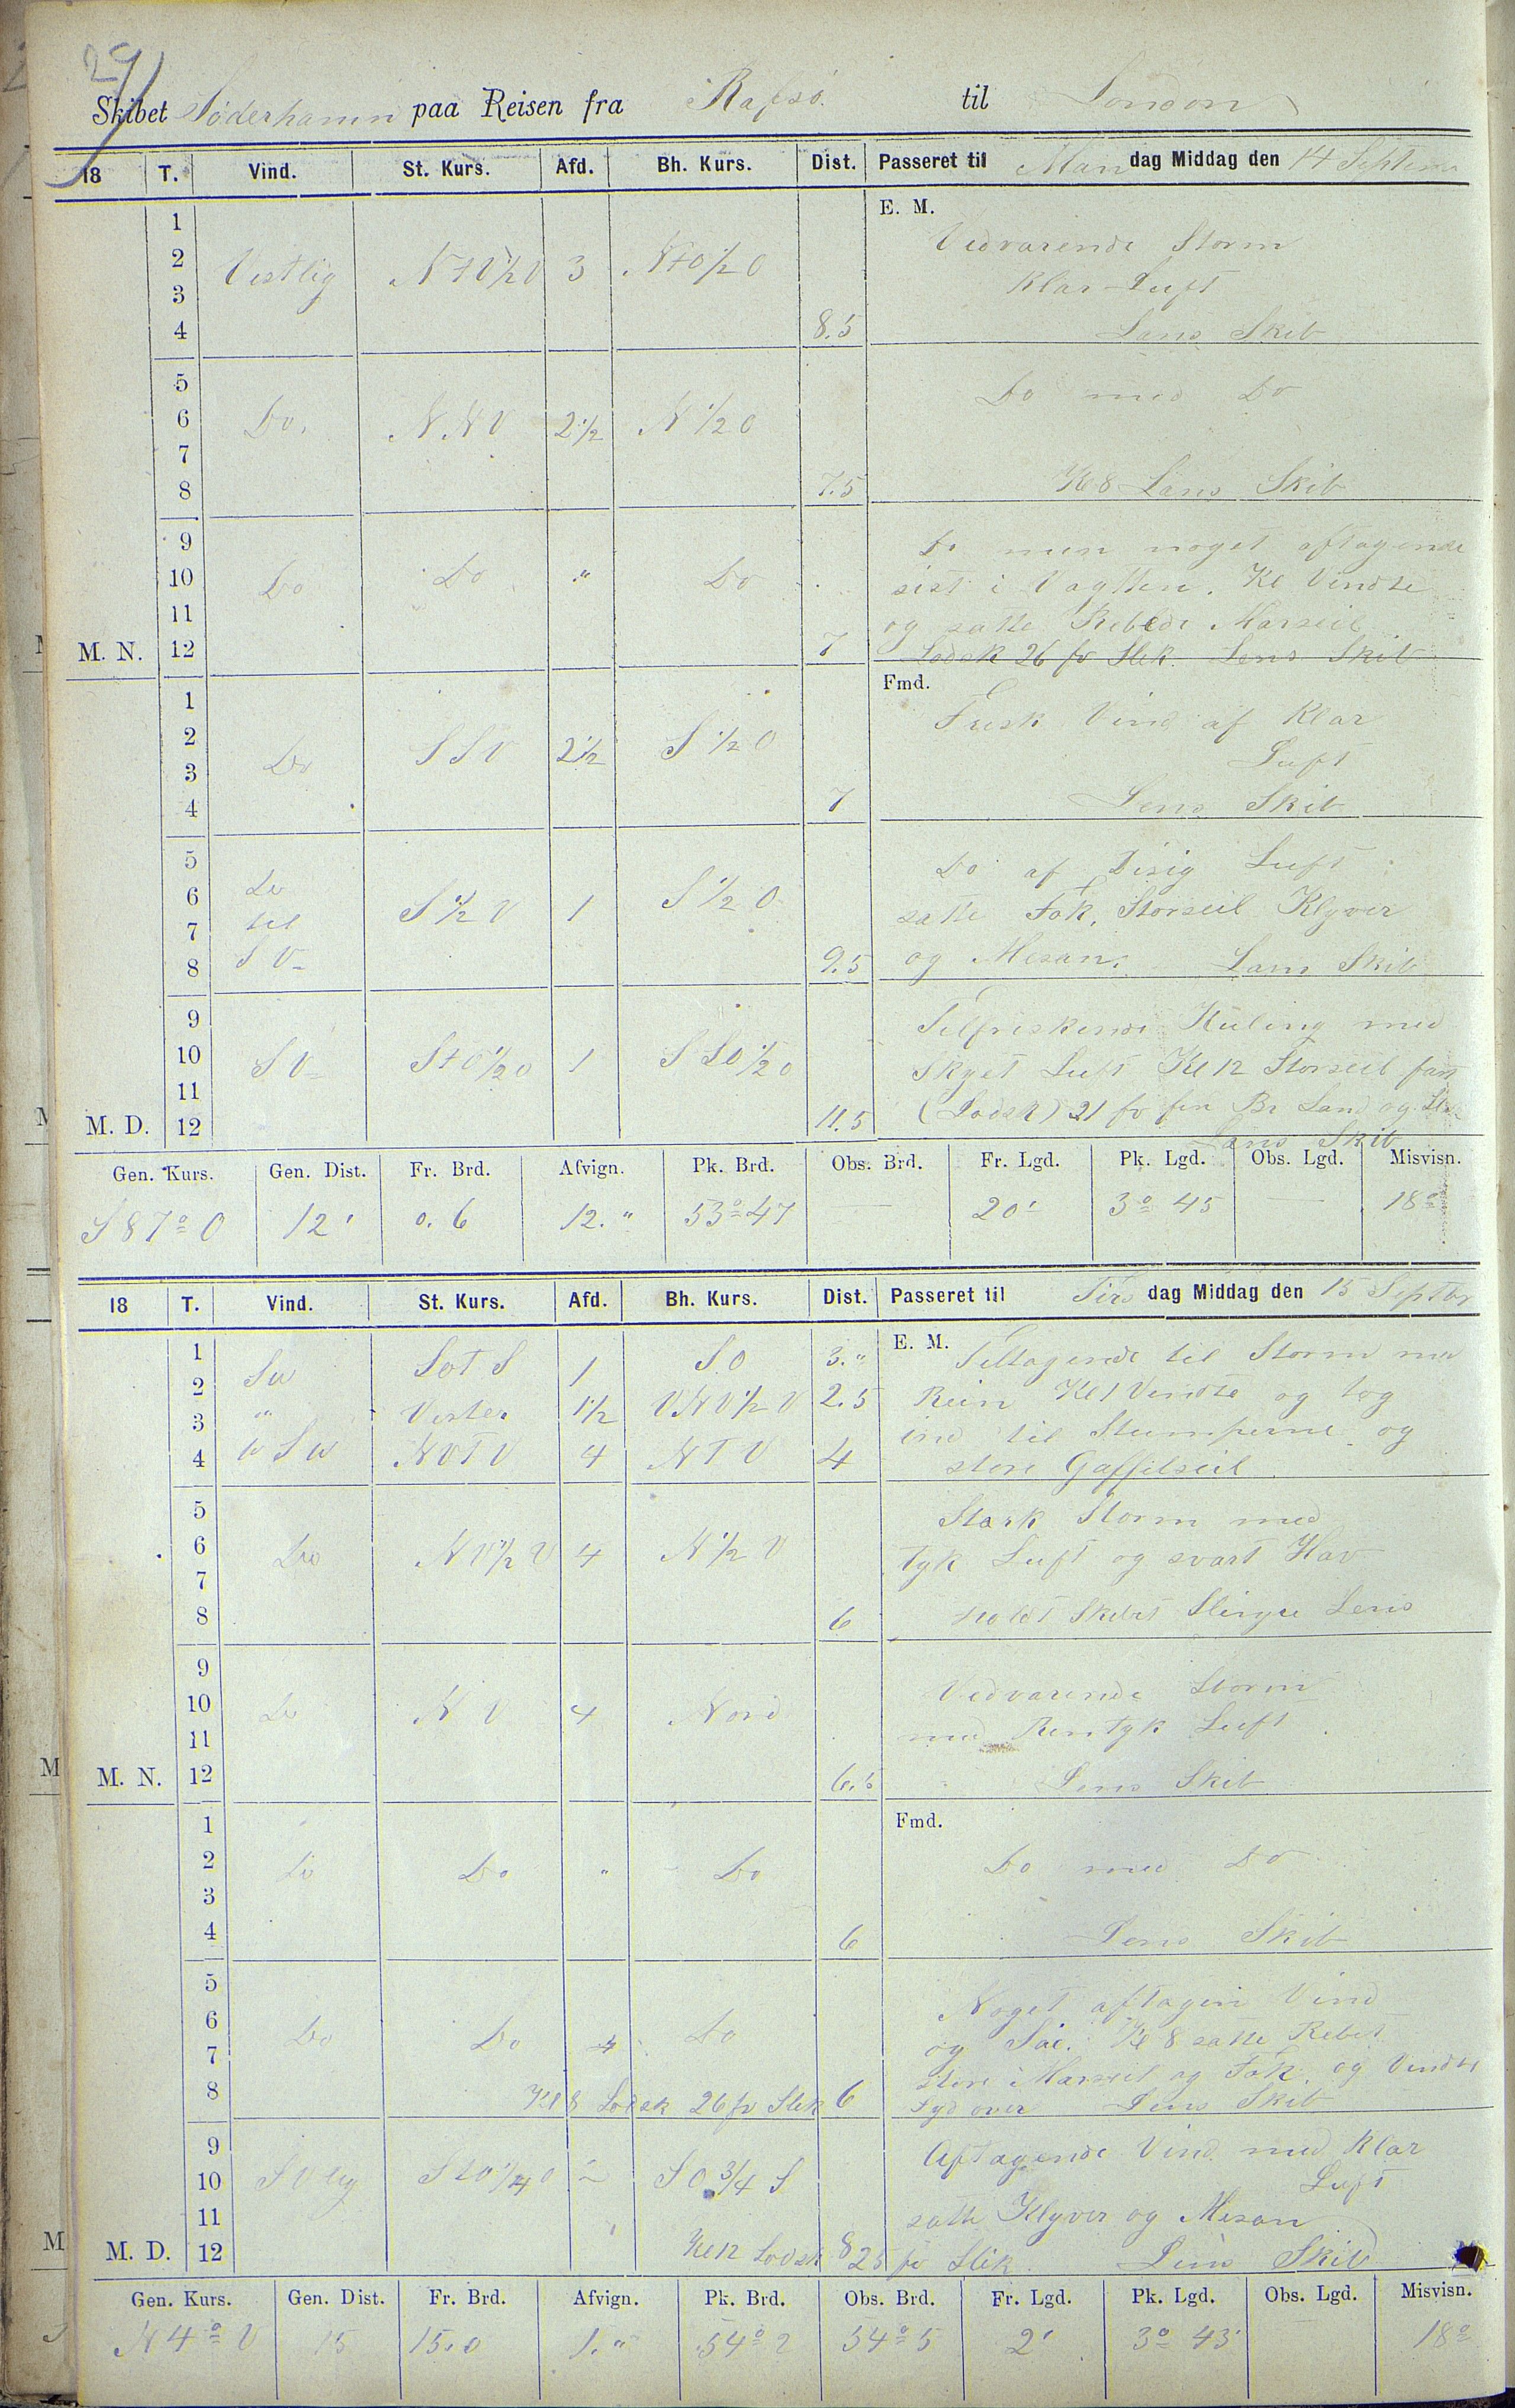 29
Skibet Söderhamn paa Reisen fra Rafsö til London
18 T. Vind. St. Kurs. Afd. Bh. Kurs. Dist. Passeret til Man dag Middag den 14 Septem
E. M.
1
2
3
4
Vestlig NtV½V 3 NtO½O 8.5
Vedvarende Storm
Klar Luft
Lens Skib
5
6
7
8
Do. NNV 2½ N½O 7.5
Do med Do
Kl 8 Lens Skib
9
10
11
M. N. 12
Do Do " Do 7
Do men noget aftagende
sist i Vagtten. Kl Vendte
og satte Rebede Marseil
Lodsk 26 fv Slik. Lens Skib
Fmd.
1
2
3
4
Do SSV 2½ S½O 7
Frisk Vind af Klar
Luft
Lens Skib
5
6
7
8
Do
til
SV S½V 1 S½O 9.5
Do af Disig Luft
satte Fok, Storseil Klyver
og Mesan. Lens Skib
9
10
11
M. D. 12
SV StO½O 1 SSO½O 11.5
Tilfriskende Kuling med
Skyet Luft Kl 12 Storseil fast
(Lodsk) 21 fv fin Br Sand og
Lens Skib
Gen. Kurs. Gen. Dist. Fr. Brd. Afvign. Pk. Brd. Obs. Brd. Fr. Lgd. Pk. Lgd. Obs. Lgd. Misvisn.
S 87° O 12' 0.6 12." 53° 47 — 20' 3° 45 — 18°
18 T. Vind. St. Kurs. Afd. Bh. Kurs. Dist. Passeret til Tirs dag Middag den 15 Septbr
E. M.
1
2
3
4
Sw SotS 1 SO 3."
" Vester 1½ VNV½V 2.5
wSw NVTV 4 NTV 4
Tiltagende til Storm med
Rein Kl 1 Vendte og tog
ind til Stumperne og
store Gaffelseil
5
6
7
8
Do NV½V 4 N½V 6
Stærk Storm med
tyk Luft og svart Hav
Holdt Skibet Slingre Lens
9
10
11
M. N. 12
Do NV 4 Nord 6.5
Vedvarende Storm
med Rentyk Luft
Lens Skib
Fmd.
1
2
3
4
Do Do " Do 6
Do med Do
Lens Skib
5
6
7
8
Do Do 4 Do 6
Kl 8 Lodsk 26 fv Slik
Noget aftagen Vind
og Søe. Kl 8 satte Rebet
store Marseil og Fok, og Vendte
Syd over Lens Skib
9
10
11
M. D. 12
SVlig StO¼O SO¾S 8
Kl 12 Lodsk 25 fv Slik
Aftagende Vind med Klar
Luft
satte Klyver og Mesan
Lens Skib
Gen. Kurs. Gen. Dist. Fr. Brd. Afvign. Pk. Brd. Obs. Brd. Fr. Lgd. Pk. Lgd. Obs. Lgd. Misvisn.
N 4° V 15 15.0 1." 54° 2 54° 5 2' 3° 43' 18°